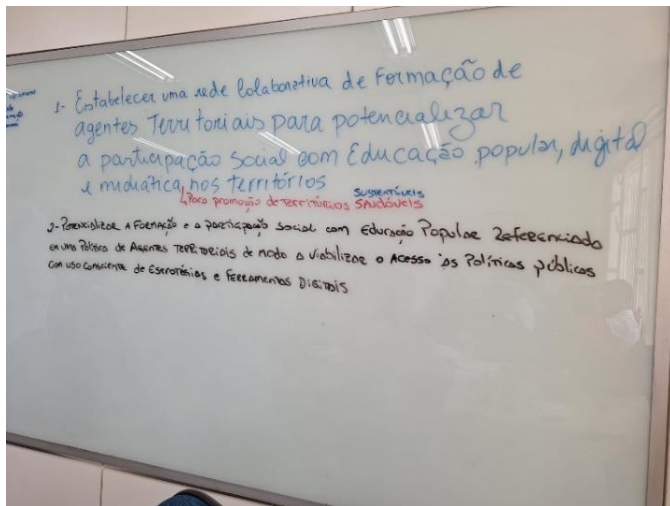 1- Estabelecer uma rede Colaborativa de Formação de
agentes Territoriais para potencializar
a participação Social com Educação popular, digital
e midiática nos territórios
SUSTENTÁVEIS
↳ Para promoção de TERRITÓRIOS SAUDÁVEIS
2- Potencializar a Formação e a participação Social com Educação Popular Referenciado
em uma Política de Agentes TERRITORIAIS de modo a Viabilizar o Acesso às Políticas públicas
Com uso consciente de e Ferramentas DIGITAIS